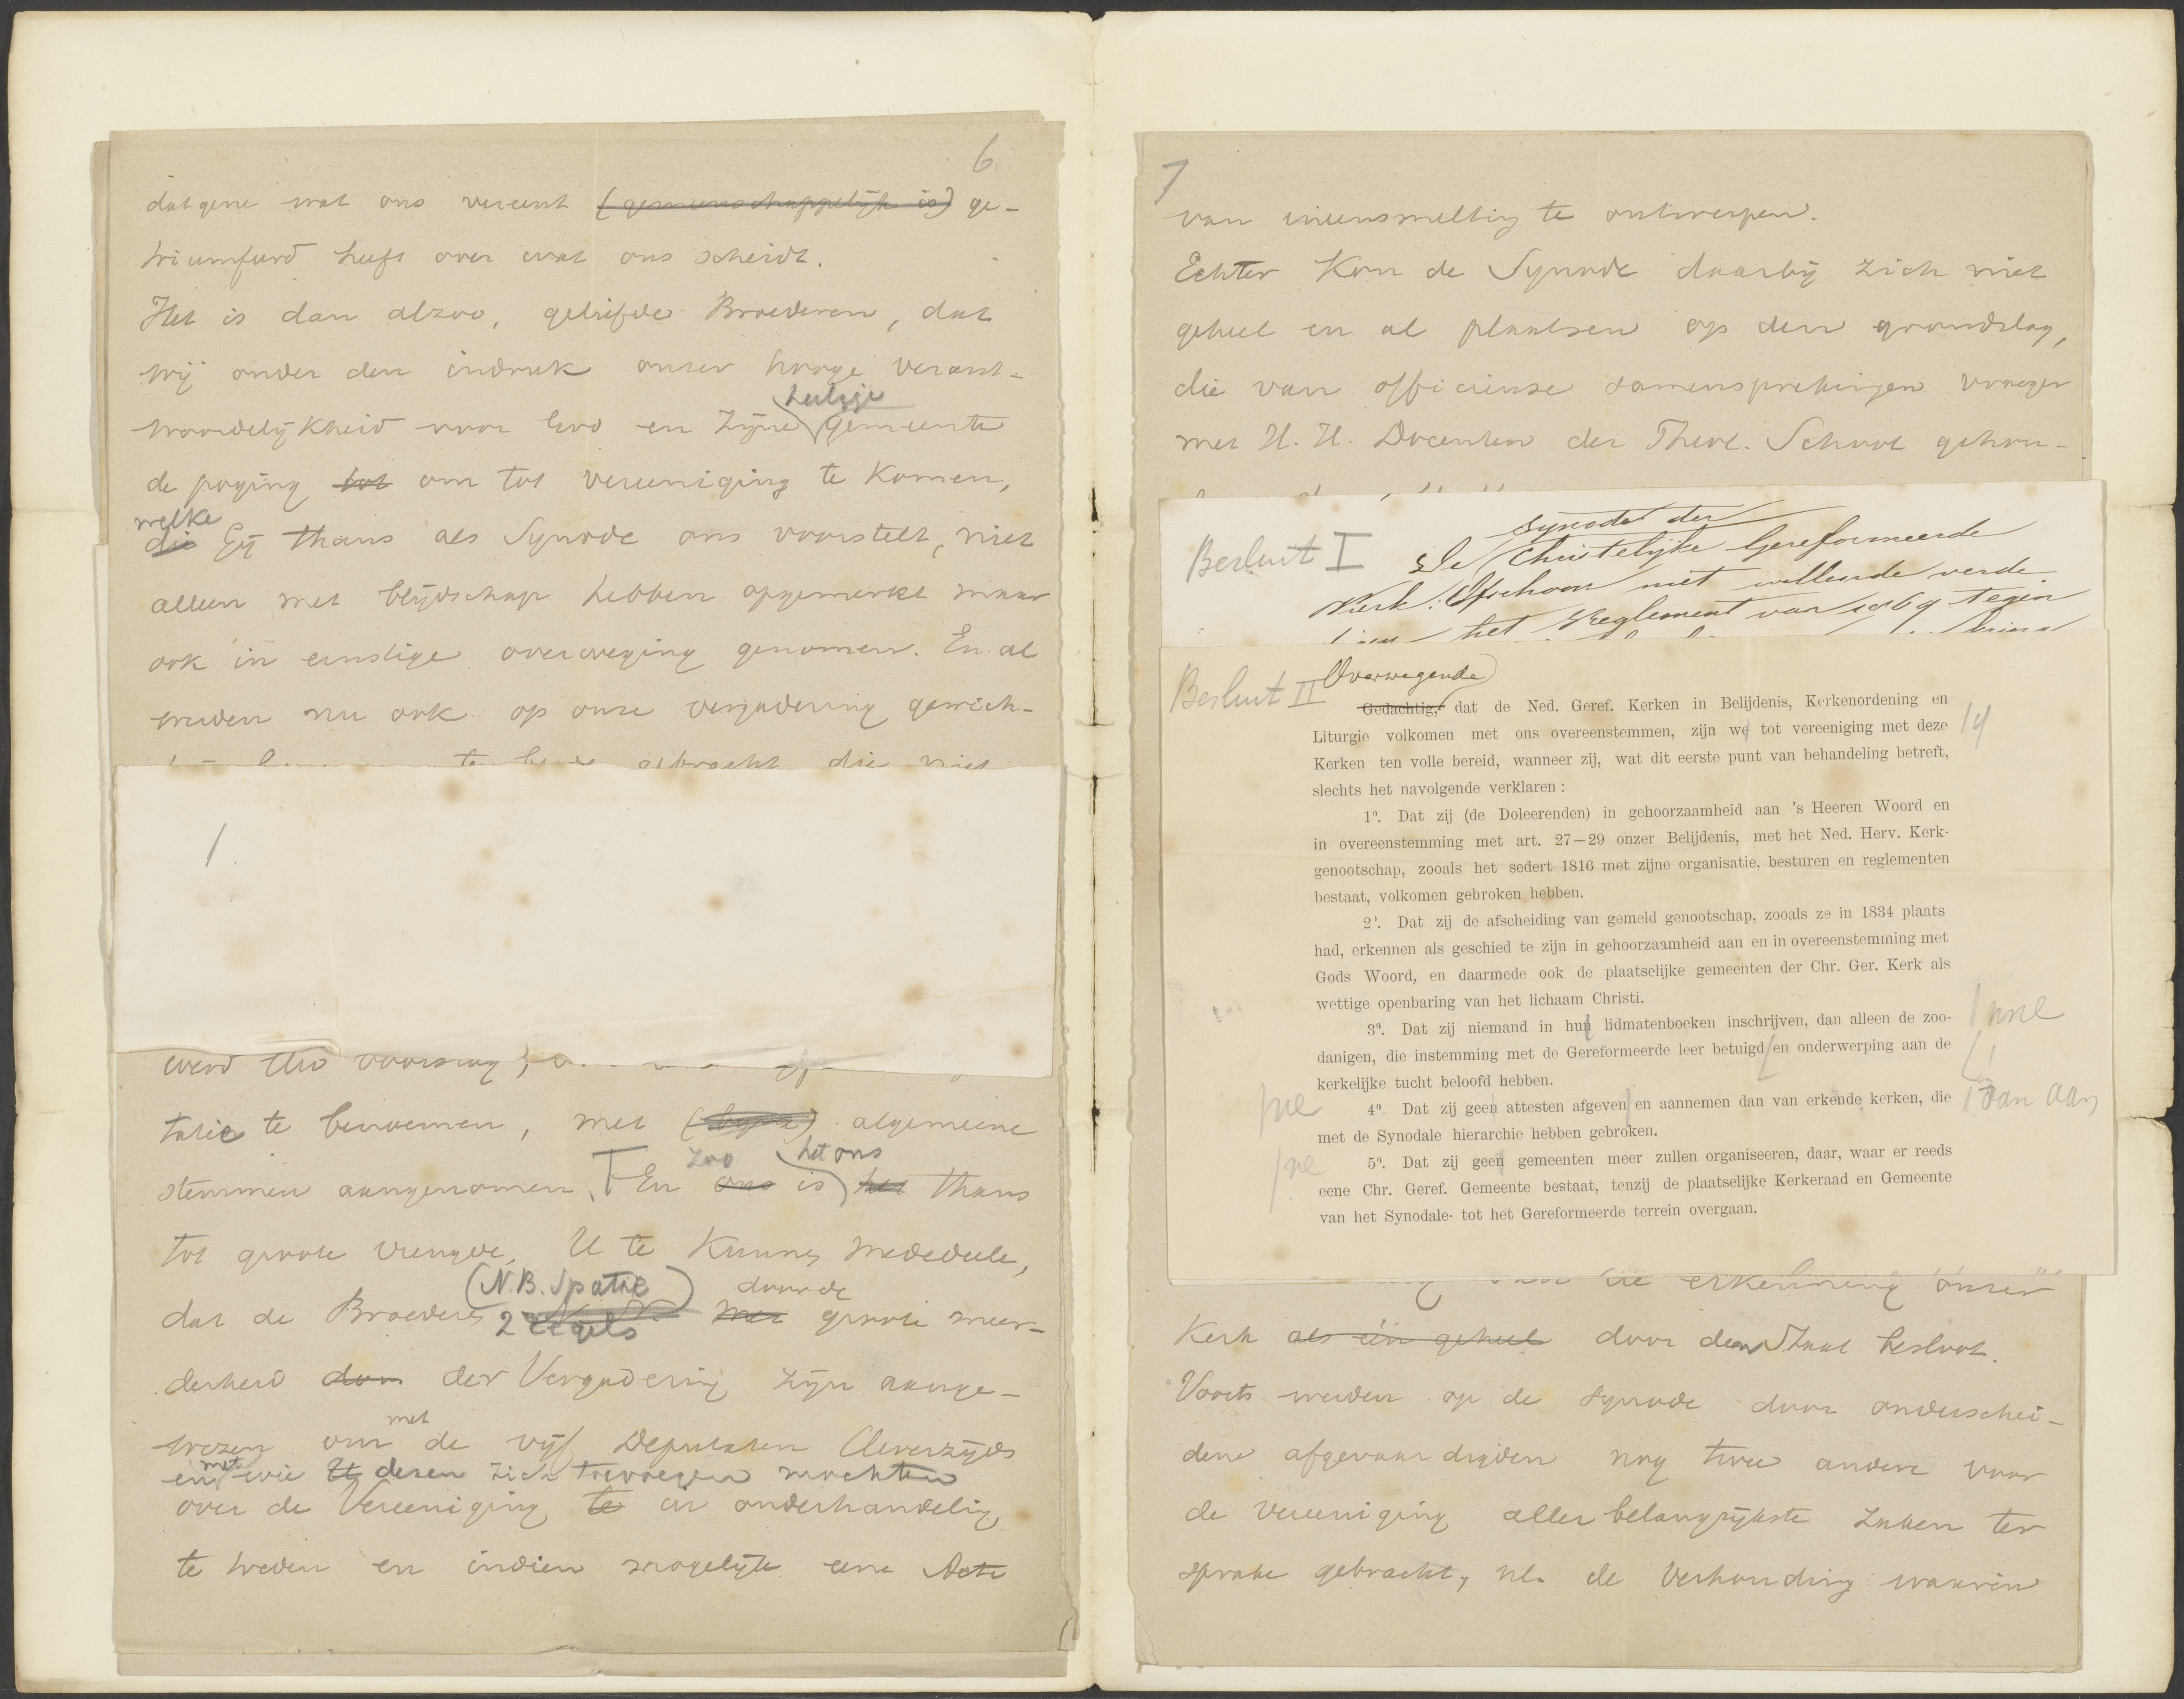 6
datgene wat ons vereent (gemeenschappelijk is) ge-
triumfeerd heeft over wat ons scheidt.
Het is dan alzoo, geliefde Broederen, dat
wij onder den indruk onzer hooge verant-
heilige
woordelijkheid voor God en Zijne gemeente
de poging tot om tot vereeniging te komen,
welke
die Gij thans als Synode ons voorstelt, niet
alleen met blijdschap hebben opgemerkt maar
ook in ernstige overweging genomen. En al
werden nu ook op onze vergadering gewich-
te berde gebracht die niet
1.
werd Uw voorslag,
tatie te benoemen, met algemeene
zoo het ons
stemmen aangenomen. En ons is het thans
tot groote vreugde, U te kunnen mededeele,
(N.B. Spatie) door de
dat de Broeders 2 regels met groote meer-
derheid don der Vergadering zijn aange-
met
wezen om de vijf Deputaten Uwerzijds
en met wie U dezen zich toevoegen mochten
over de Vereeniging te in onderhandeling
te treden en indien mogelijk eene Acte
7
van ineensmelting te ontwerpen.
Echter kon de Synode daarbij zich niet
geheel en al plaatsen op den grondslag,
die van officieuse samensprekingen vroeger
met H.H. Docenten der Theol. School gehou-
synode der
Besluit I De Christelijke Gereformeerde
Kerk. Ofschoon niet willende verde
het Reglement van 1869 tegen
Besluit II Overwegende
Gedachtig, dat de Ned. Geref. Kerken in Belijdenis, Kerkenordening en
Liturgie volkomen met ons overeenstemmen, zijn we tot vereeniging met deze
Kerken ten volle bereid, wanneer zij, wat dit eerste punt van behandeling betreft,
slechts het navolgende verklaren:
1º. Dat zij (de Doleerenden) in gehoorzaamheid aan 's Heeren Woord en
in overeenstemming met art. 27—29 onzer Belijdenis, met het Ned. Herv. Kerk-
genootschap, zooals het sedert 1816 met zijne organisatie, besturen en reglementen
bestaat, volkomen gebroken hebben.
2º. Dat zij de afscheiding van gemeld genootschap, zooals ze in 1834 plaats
had, erkennen als geschied te zijn in gehoorzaamheid aan en in overeenstemming met
Gods Woord, en daarmede ook de plaatselijke gemeenten der Chr. Ger. Kerk als
wettige openbaring van het lichaam Christi.
3º. Dat zij niemand in hun lidmatenboeken inschrijven, dan alleen de zoo-
danigen, die instemming met de Gereformeerde leer betuigd en onderwerping aan de
kerkelijke tucht beloofd hebben.
4º. Dat zij geen attesten afgeven en aannemen dan van erkende kerken, die
met de Synodale hierarchie hebben gebroken.
5º. Dat zij geen gemeenten meer zullen organiseeren, daar, waar er reeds
eene Chr. Geref. Gemeente bestaat, tenzij de plaatselijke Kerkeraad en Gemeente
van het Synodale- tot het Gereformeerde terrein overgaan.
ne
ne
van aan
de erkenning onzer
Kerk als één geheel door den Staat besloot.
Voorts werden op de synode door onderschei-
dene afgevaardigden nog twee andere voor
de vereeniging aller belangrijkste zaken ter
sprake gebracht, nl. de Verhouding waarin